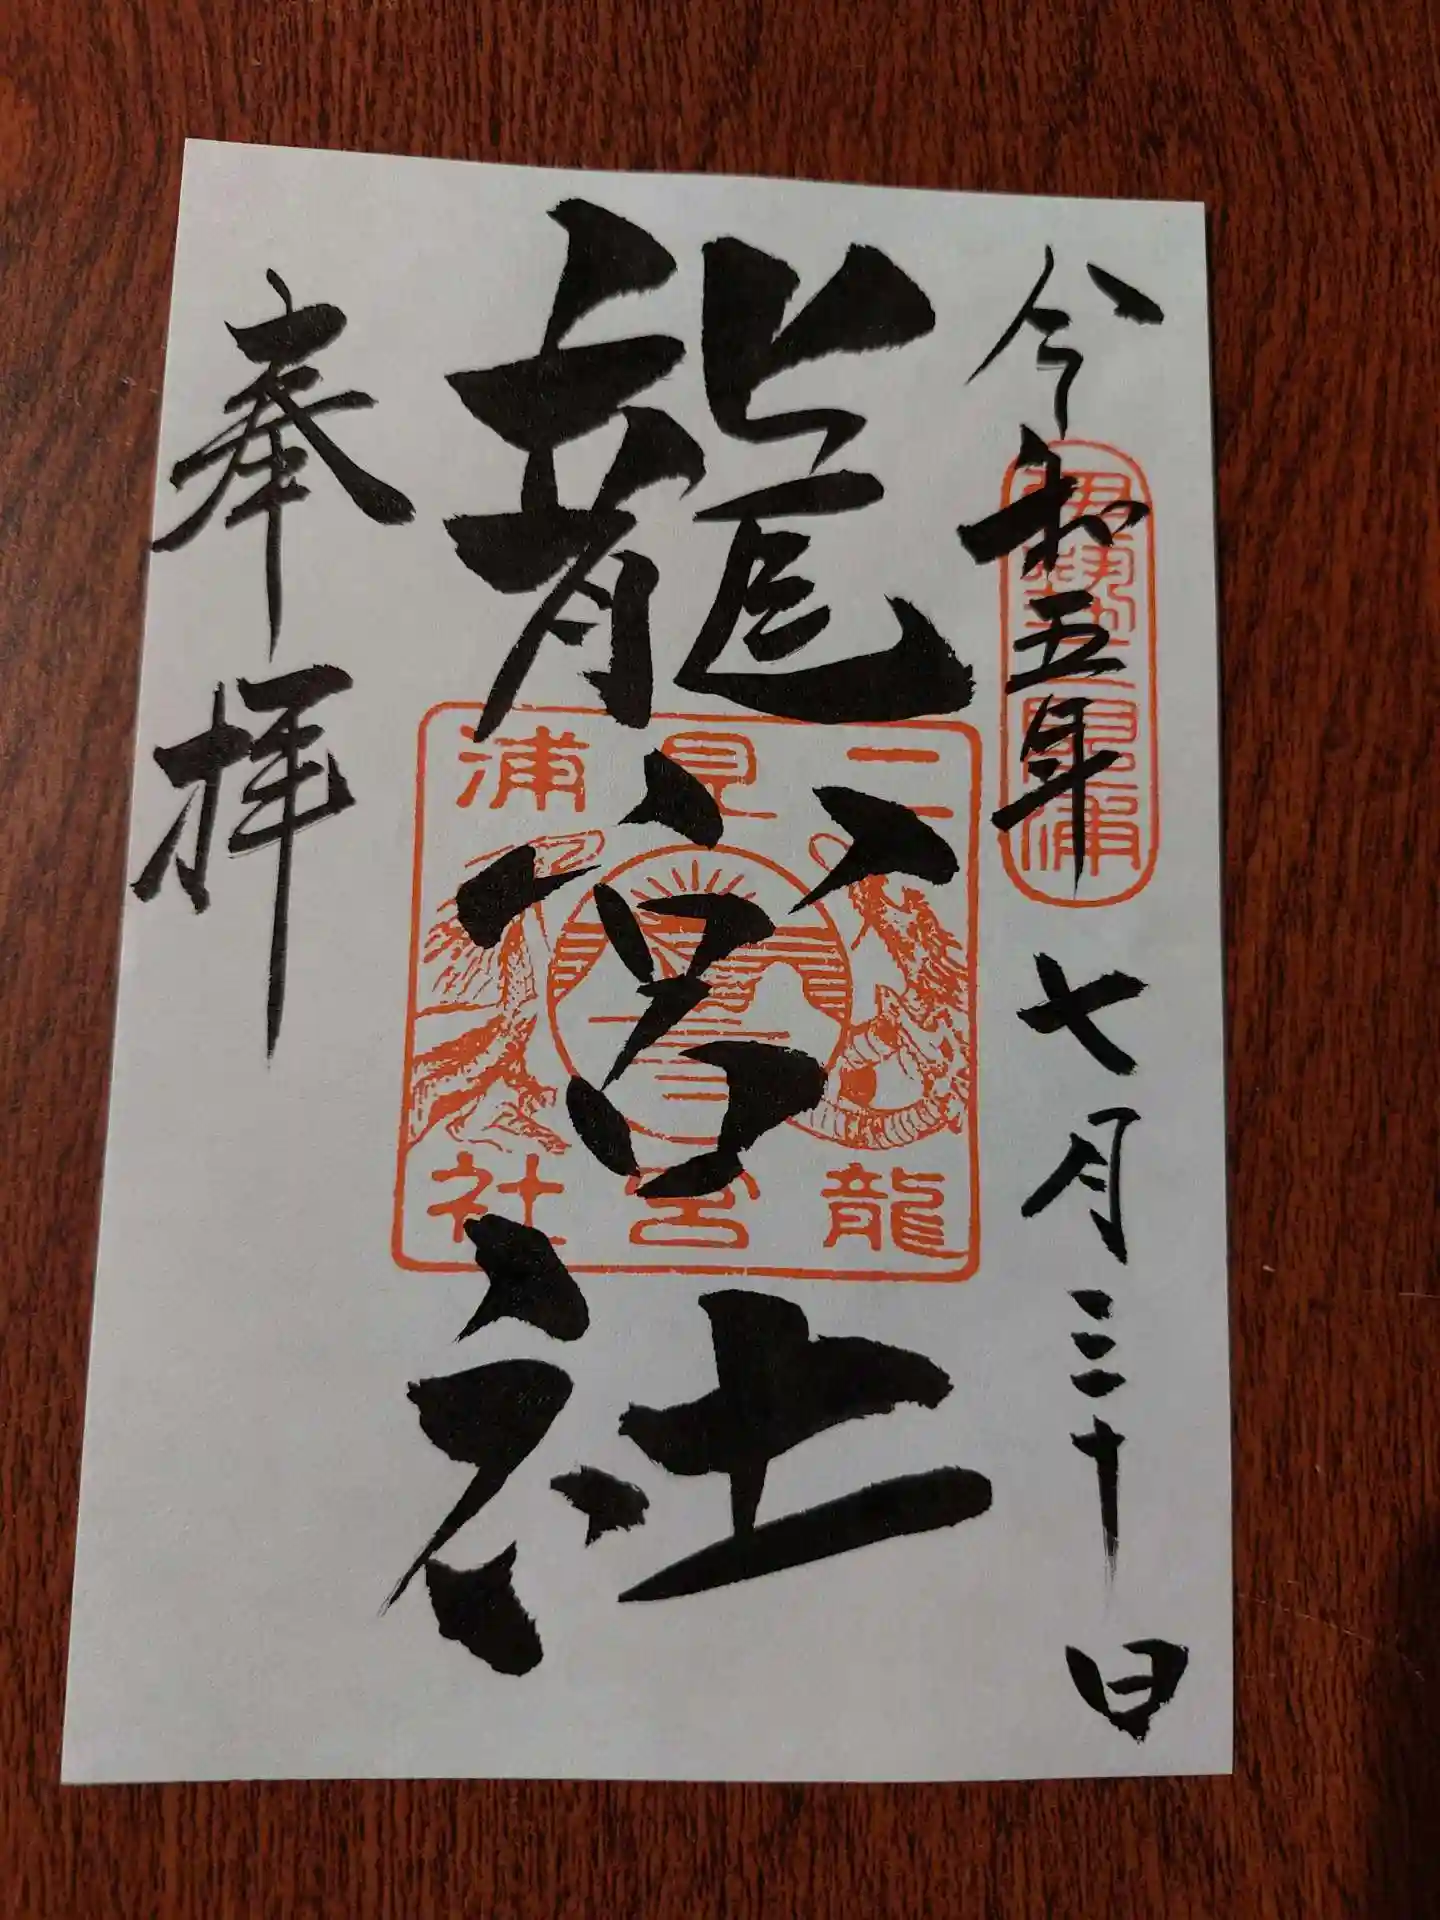 令和五年七月三十日
伊勢二見浦
龍宮社
二見浦
龍宮社
奉拝